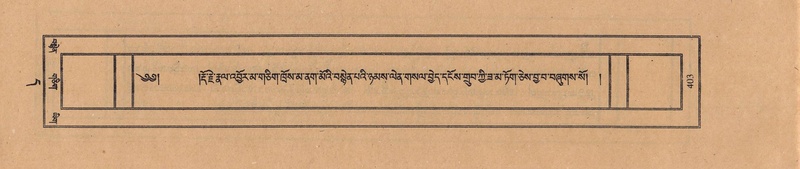 ༄༅། །རྡོ་རྗེ་རྣལ་འབྱོར་མ་གཅིག་ཁྲོས་མ་ནག་མོའི་བསྙེན་པའི་ཉམས་ལེན་གསལ་བྱེད་དངོས་གྲུབ་ཀྱི་ཟ་མ་ཏོག་ཅེས་བྱ་བ་བཞུགས་སོ། །
403